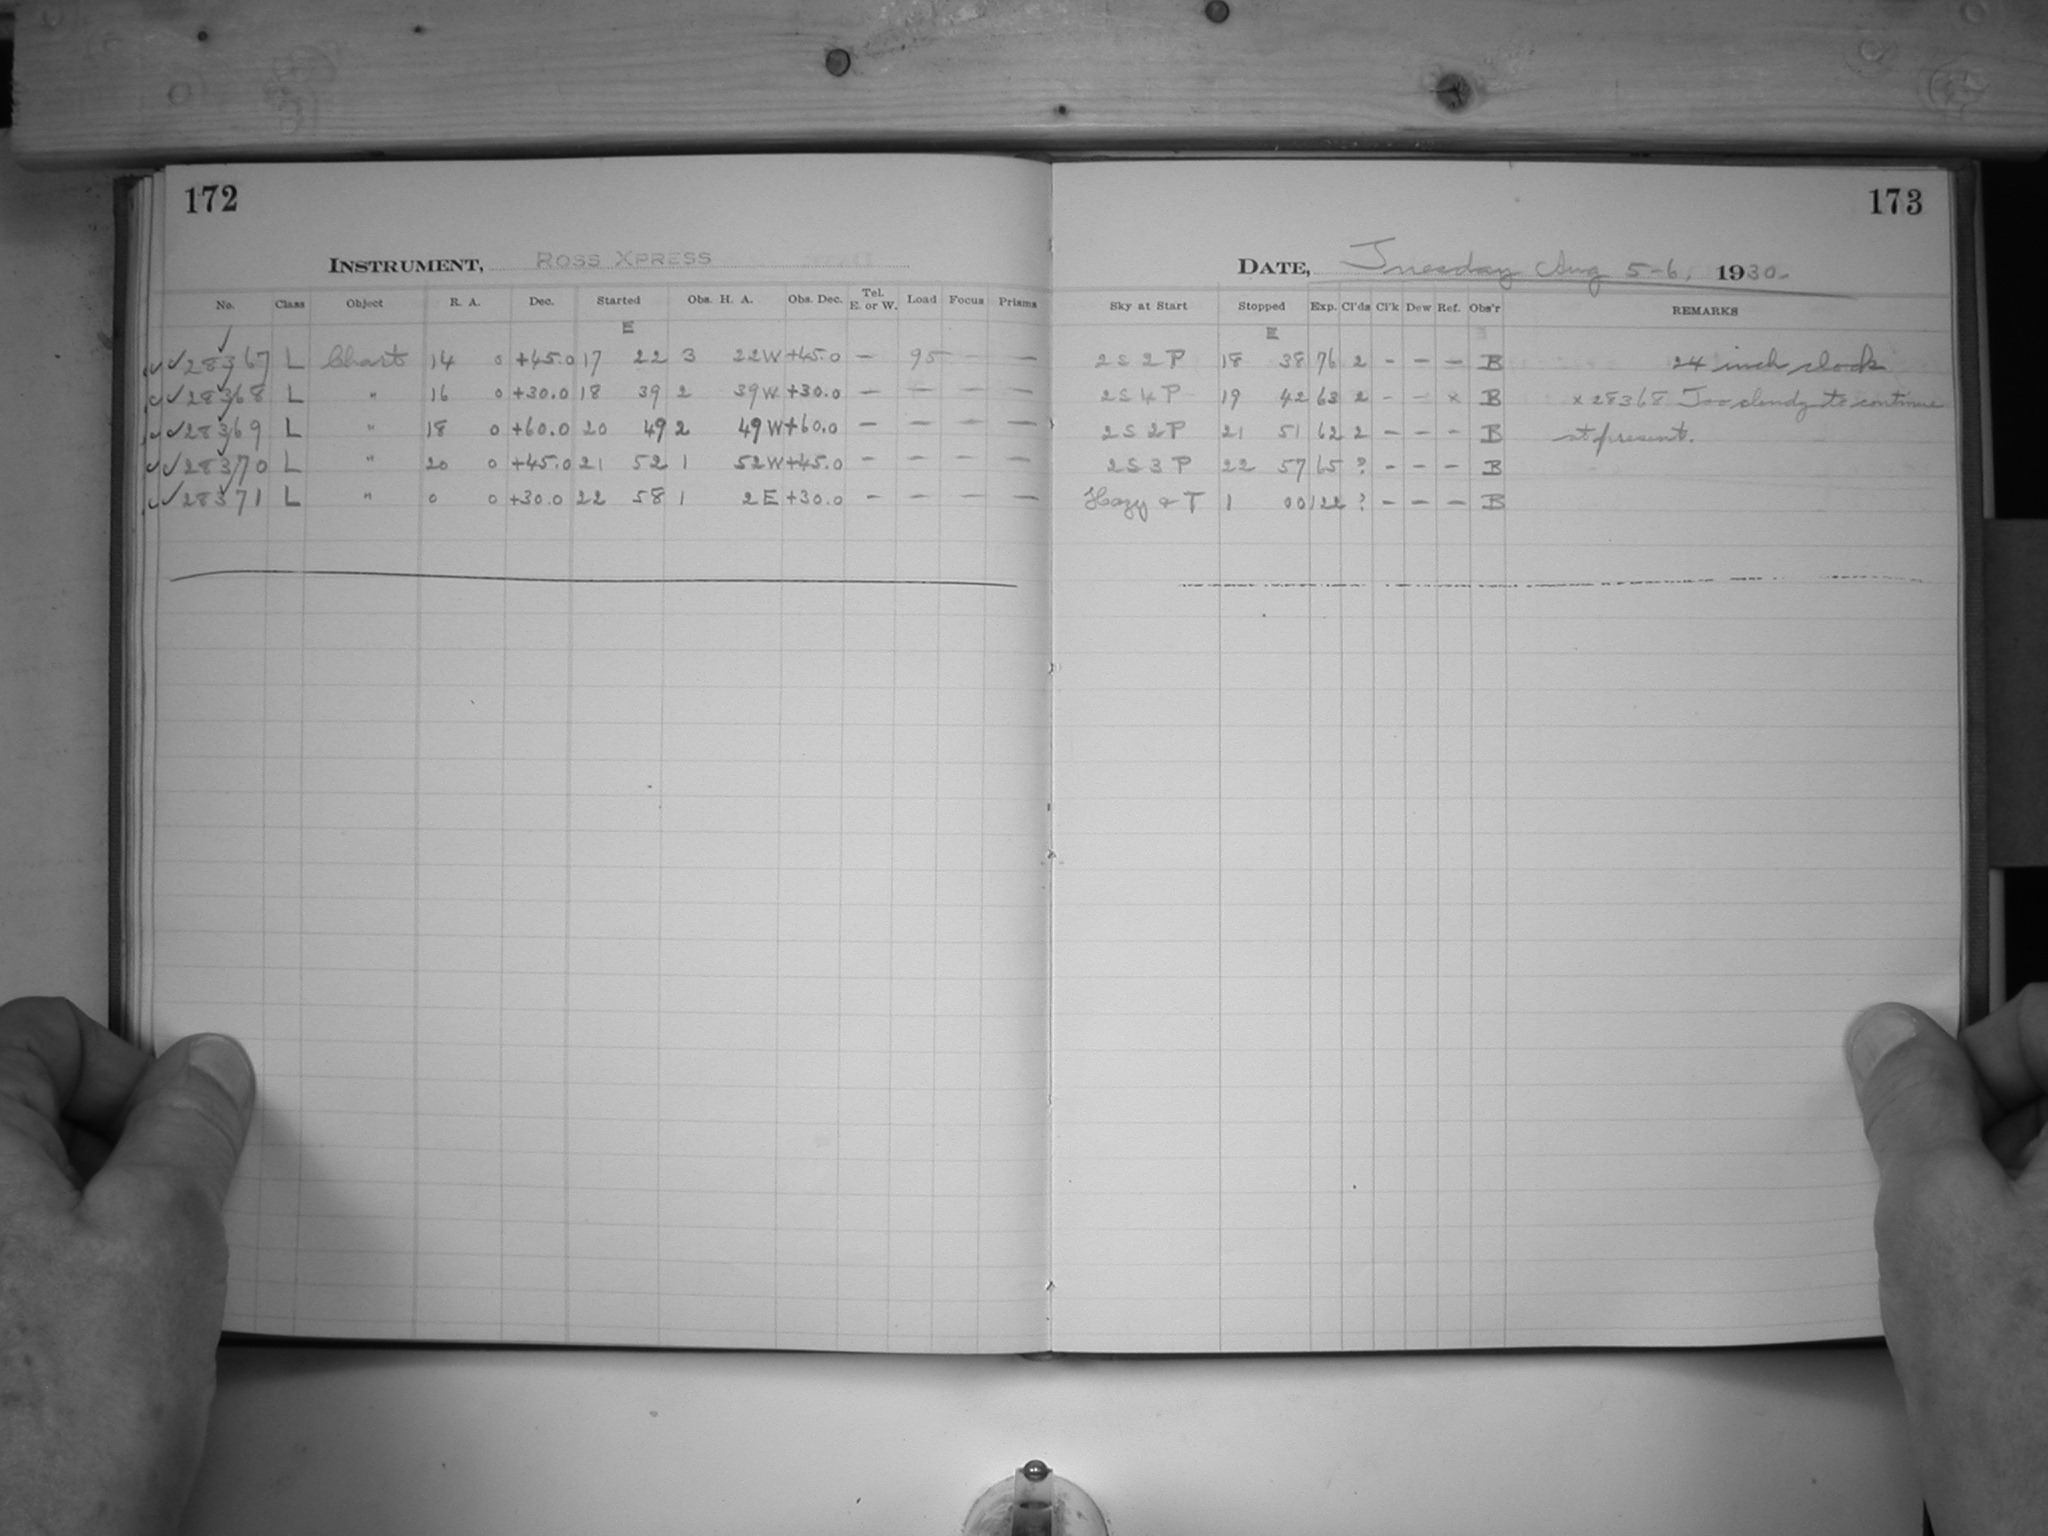 172
INSTRUMENT, ROSS XPRESS
No. Class Object R. A. Dec. Started Obs. H. A. Obs. Dec. Tel. E. or W. Load Focus Prisms
E
✓✓28367 L Chart 14 0 +45.0 17 22 3 22W +45.0 — 95 — —
✓✓28368 L " 16 0 +30.0 18 39 2 39W +30.0 — — — —
✓✓28369 L " 18 0 +60.0 20 49 2 49W +60.0 — — — —
✓✓28370 L " 20 0 +45.0 21 52 1 52W +45.0 — — — —
✓✓28371 L " 0 0 +30.0 22 58 1 2E +30.0 — — — —
173
DATE, Tuesday Aug 5-6, 1930.
Sky at Start Stopped Exp. Cl'ds Cl'k Dew Ref. Obs'r REMARKS
E
2S2P 18 38 76 2 - - - B 24 inch clock
2S4P 19 42 63 2 - - x B x 28368 Too cloudy to continue
2S2P 21 51 62 2 - - - B at present.
2S3P 22 57 65 ? - - - B
Hazy & T 1 00 122 ? - - - B